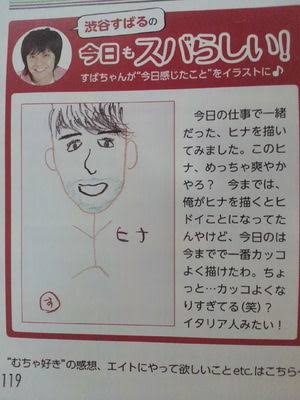 渋谷すばるの
今日もスバらしい!
すばちゃんが“今日感じたこと”をイラストに♪
今日の仕事で一緒
だった、ヒナを描い
てみました。このヒ
ナ、めっちゃ爽やか
やろ? 今までは、
俺がヒナを描くとヒ
ドイことになってた
んやけど、今日のは
今までで一番カッコ
よく描けたわ。ちょ
っと…カッコよくな
りすぎてる(笑)?
イタリア人みたい!
ヒナ
す
“むちゃ好き”の感想、エイトにやって欲しいことetc.はこちら
119